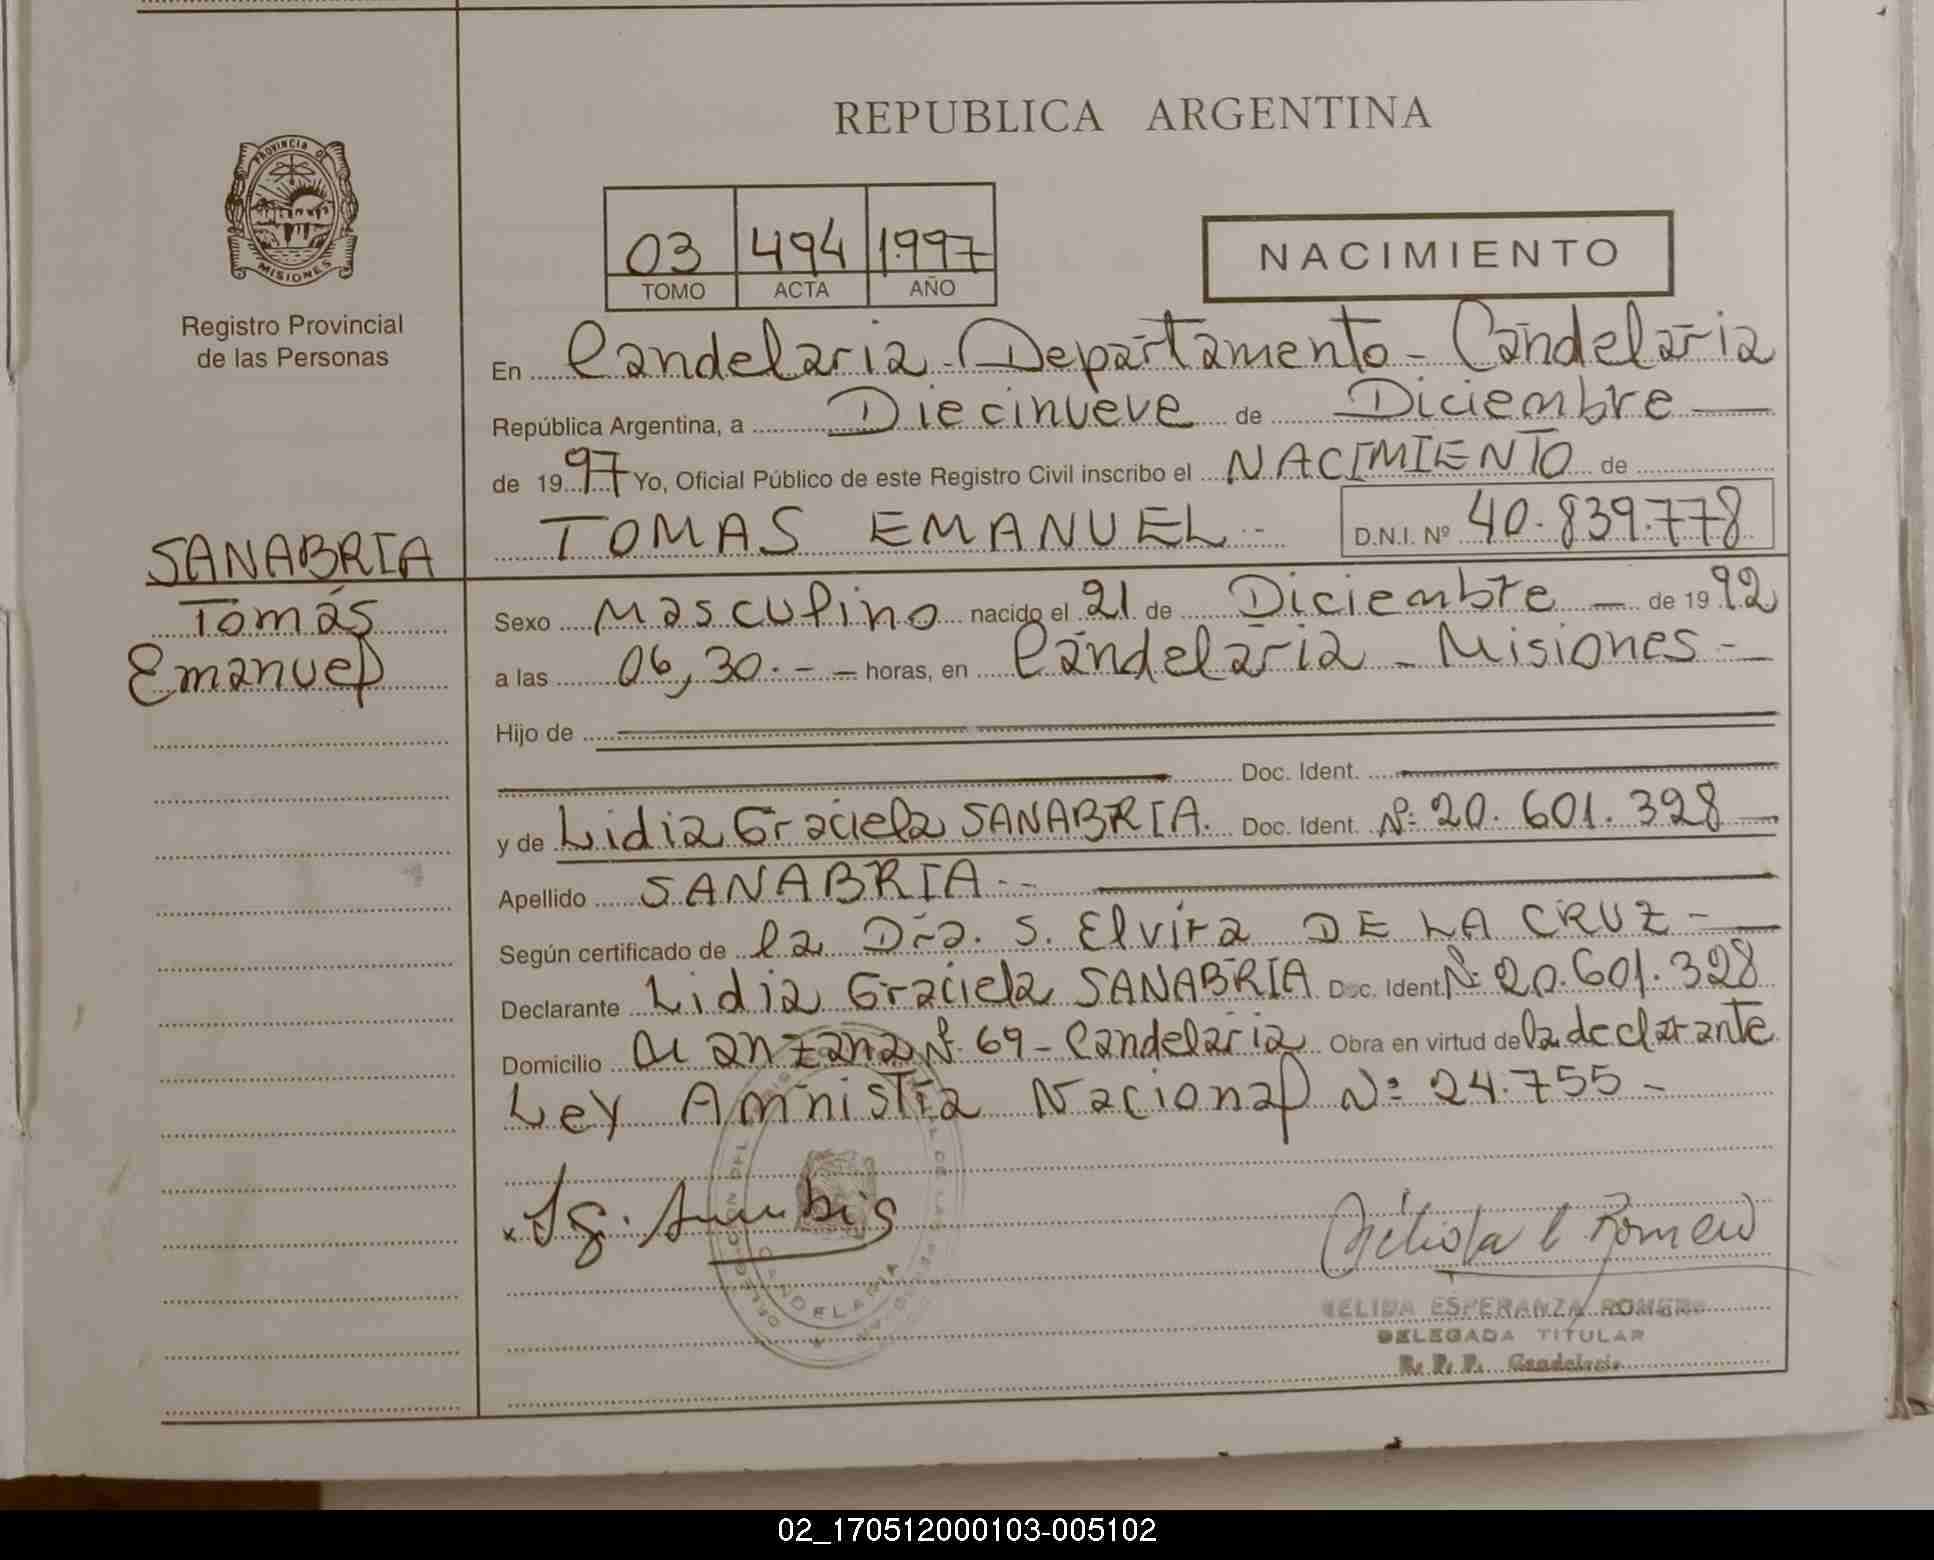 REPUBLICA ARGENTINA
PROVINCIA DE
MISIONES
Registro Provincial
de las Personas
03 494 1.997
TOMO ACTA AÑO
NACIMIENTO
En Candelaria - Departamento - Candelaria
República Argentina, a Diecinueve de Diciembre
de 1997 Yo, Oficial Público de este Registro Civil inscribo el NACIMIENTO de
TOMAS EMANUEL -- D.N.I. Nº 40.839.778
SANABRIA
Tomás
Emanuel
Sexo Masculino nacido el 21 de Diciembre - de 1992
a las 06,30.-- horas, en Candelaria - Misiones -
Hijo de
Doc. Ident.
y de Lidia Graciela SANABRIA. Doc. Ident. Nº: 20.601.328
Apellido SANABRIA.--
Según certificado de la Dra. S. Elvira DE LA CRUZ -
Declarante Lidia Graciela SANABRIA Doc. Ident. Nº: 20.601.328
Domicilio Manzana Nº 69 - Candelaria Obra en virtud de la declarante
Ley Amnistia Nacional Nº: 24.755 -
CANDELARIA
NELIDA ESPERANZA ROMERO
DELEGADA TITULAR
R. P. P. Candelaria
02_170512000103-005102